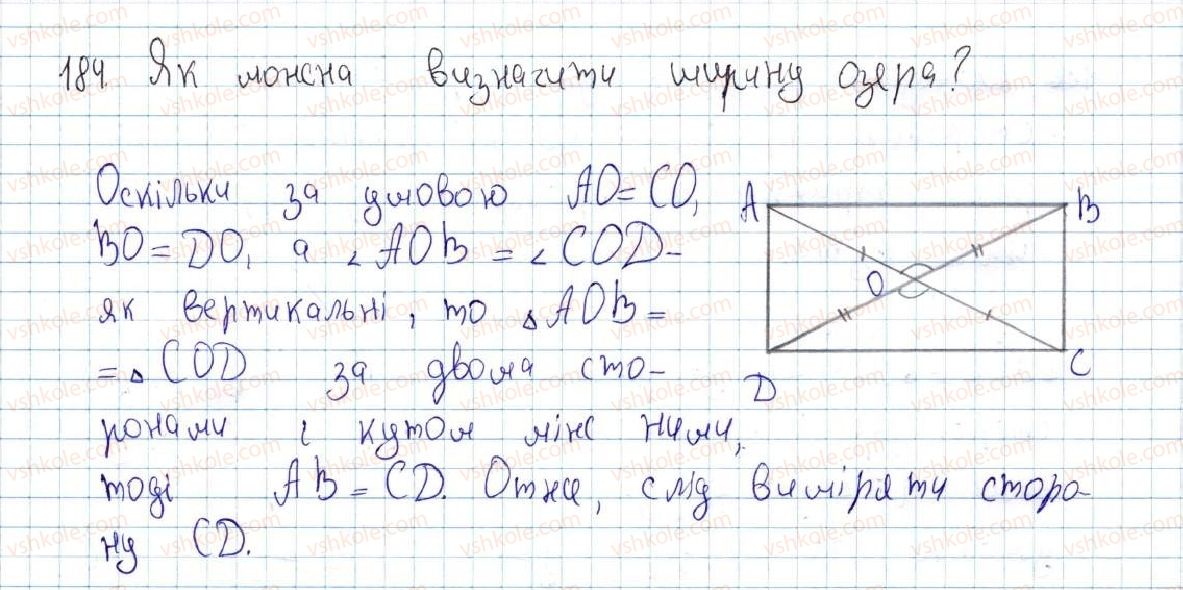 184. Як можна визначити ширину озера?
Оскільки за умовою AO=CO,
BO=DO, а ∠AOB = ∠COD-
як вертикальні, то △AOB=
=△COD за двома сто-
ронами і кутом між ними,
тоді AB=CD. Отже, слід виміряти сторо-
ну CD.
A B
O
D C
vshkole.com